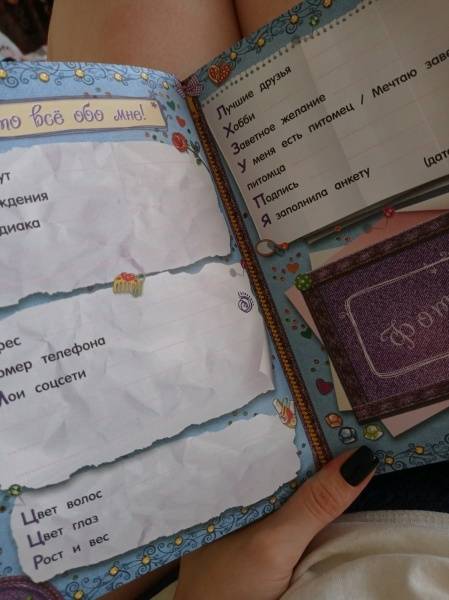 то всё обо мне!
ут
ждения
диака
рес
омер телефона
Мои соцсети
Цвет волос
Цвет глаз
Рост и вес
Лучшие друзья
Хобби
Заветное желание
У меня есть питомец / Мечтаю заве
питомца
Подпись
Я заполнила анкету (дат
Фото